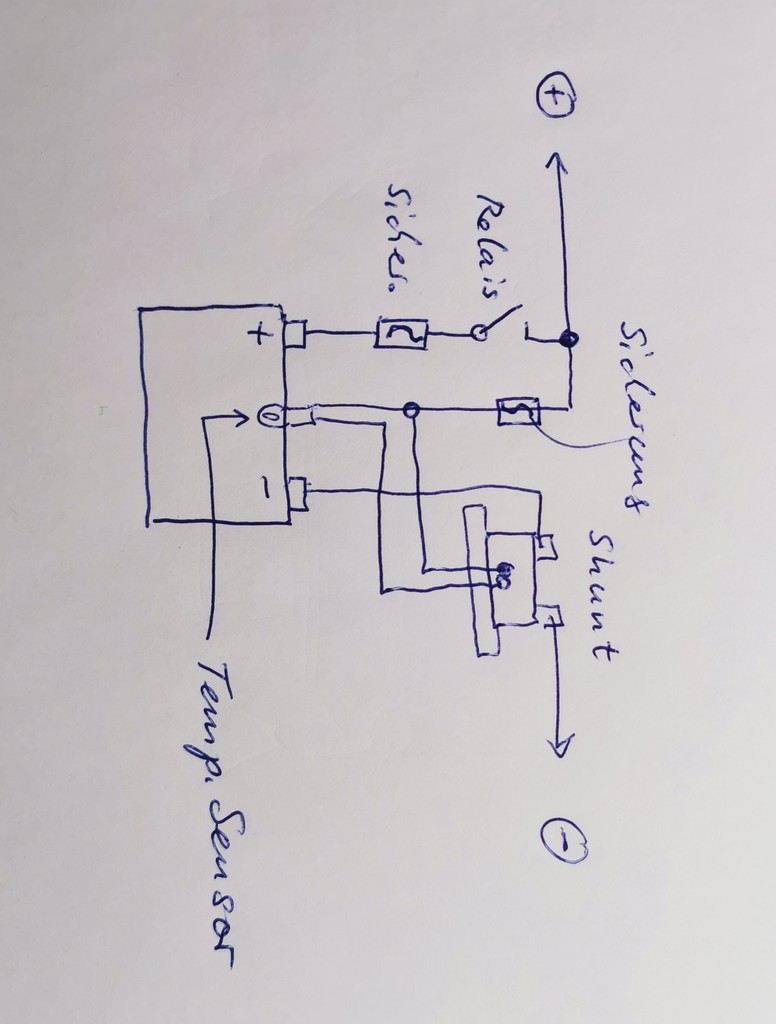 +
Sicher.
Relais
Sicherung
+
-
Shunt
Temp. Sensor
-